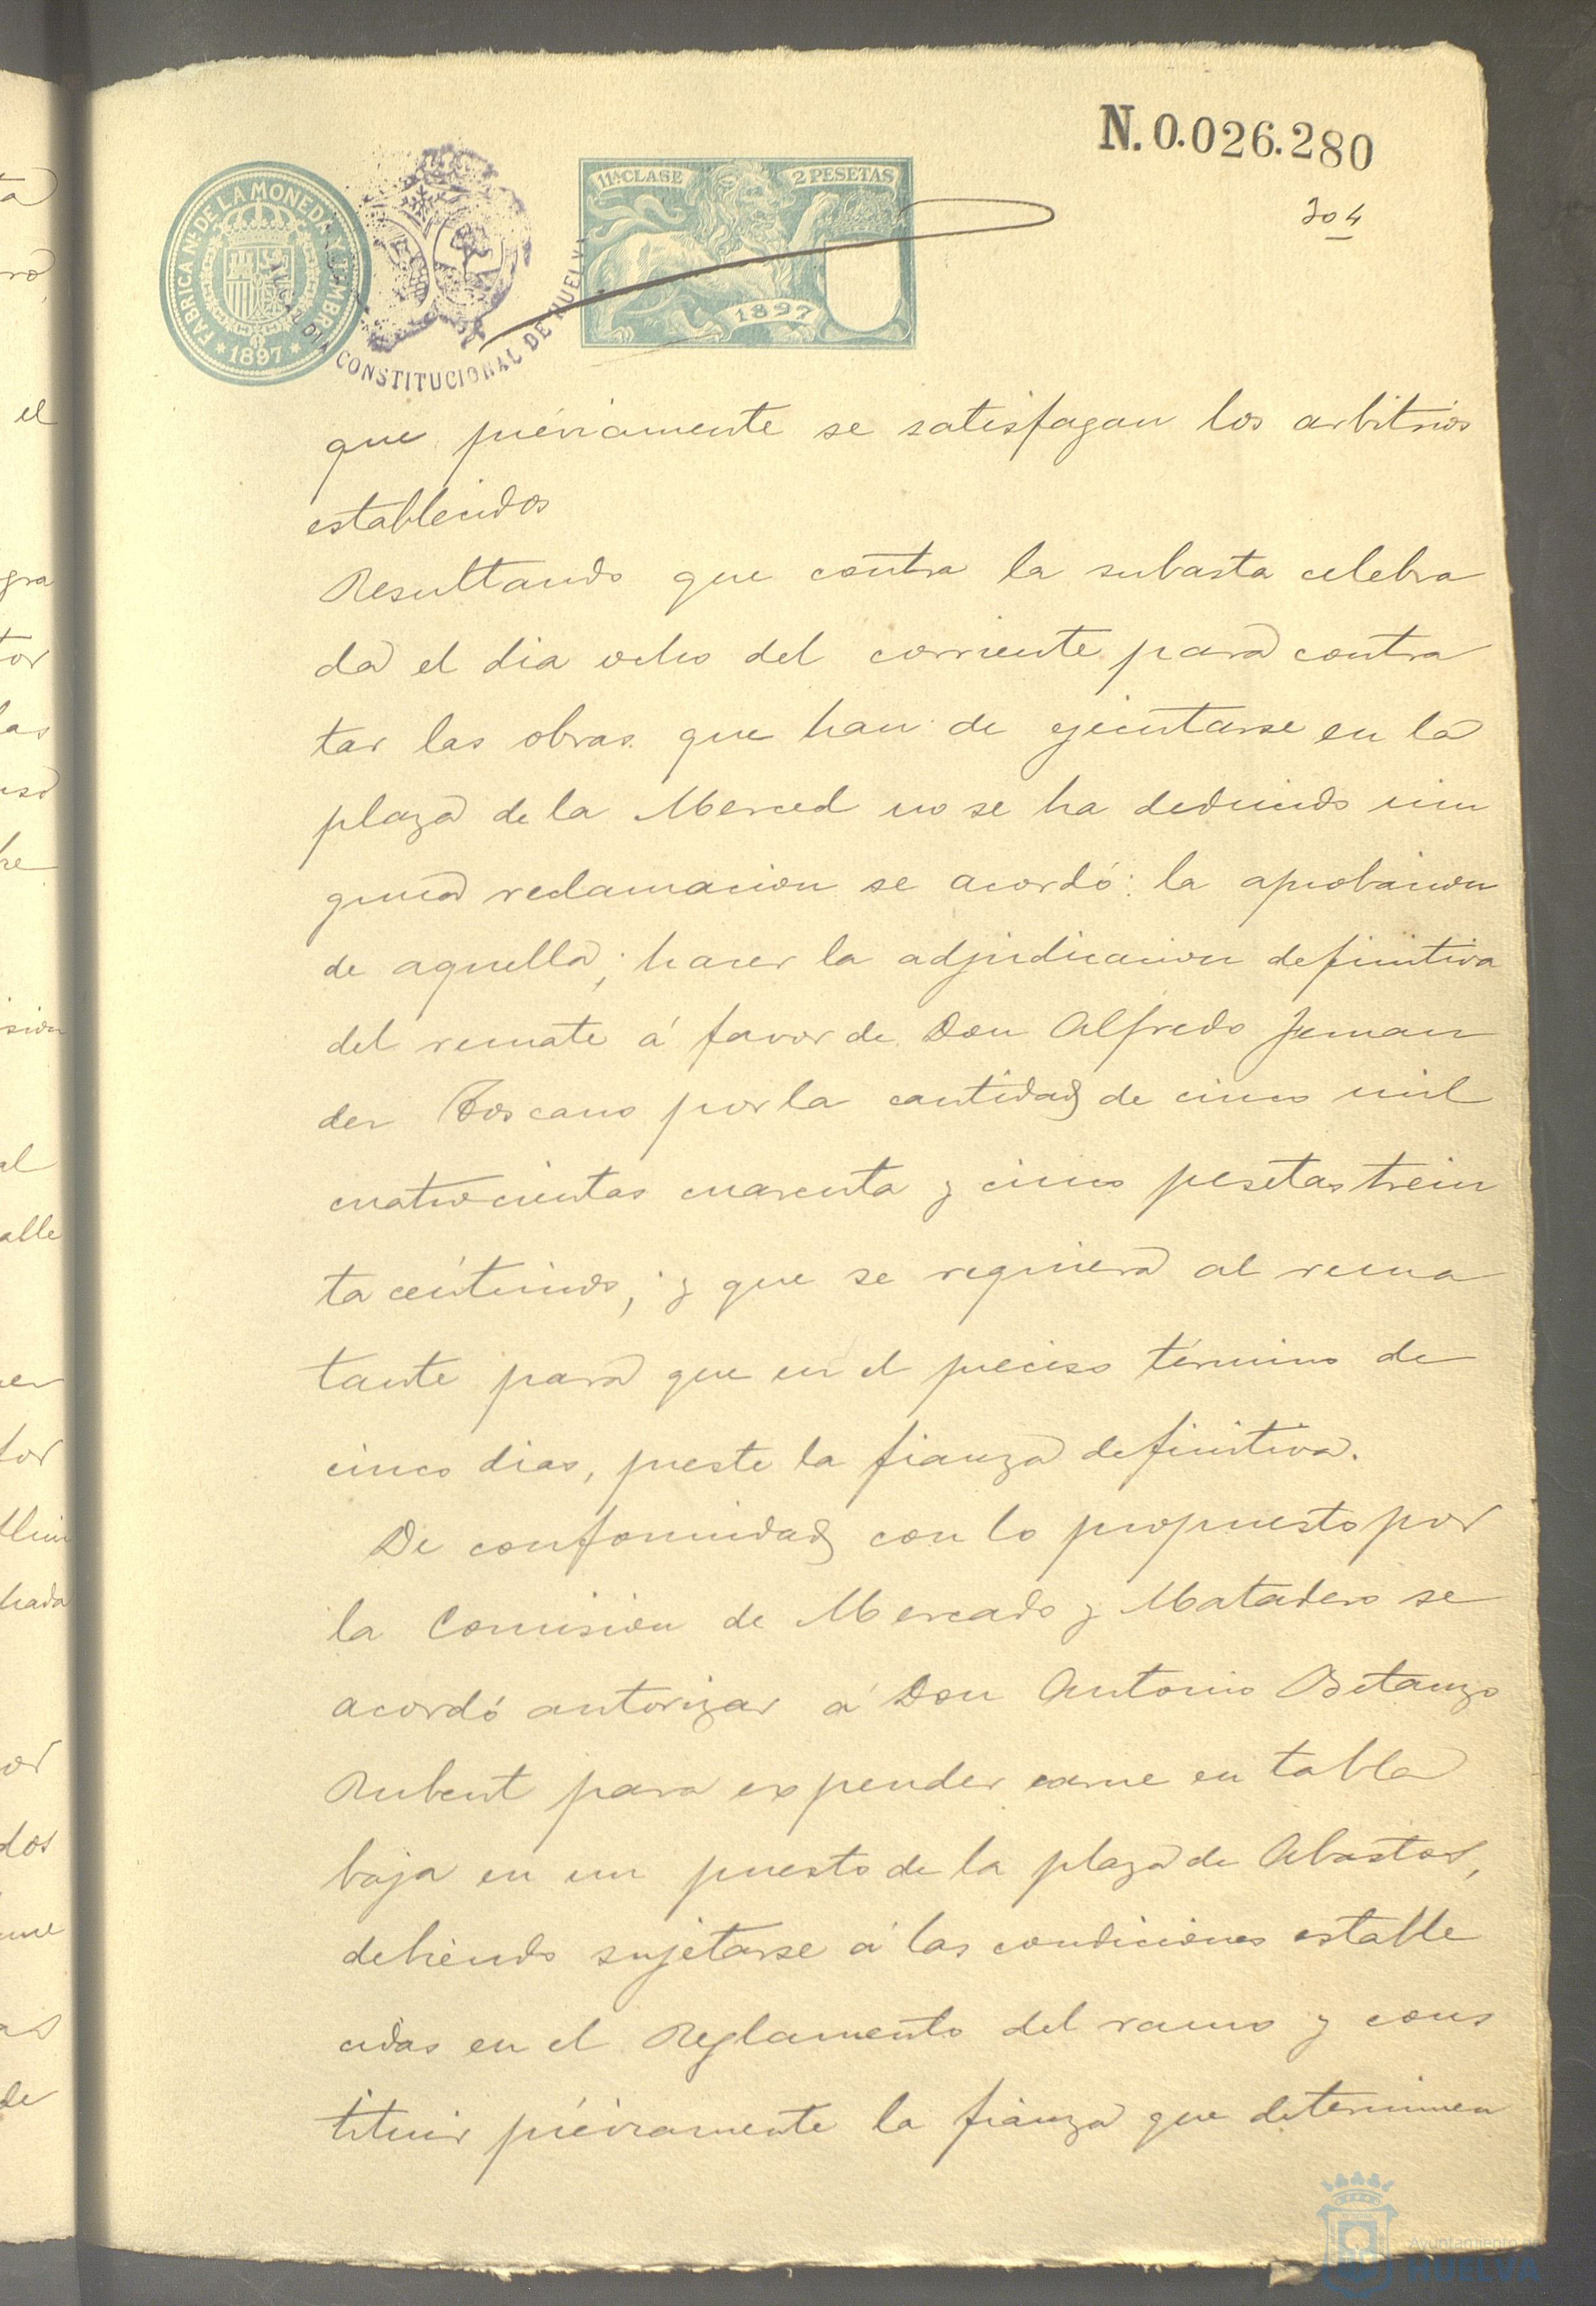 N. 0.026.280
304
FABRICA NAL. DE LA MONEDA Y TIMBRE
* 1897 *
ALCALDIA CONSTITUCIONAL DE HUELVA
11ª CLASE
2 PESETAS
1897
que préviamente se satisfagan los arbitrios
establecidos
Resultando que contra la subasta celebra
da el dia ocho del corriente para contra
tar las obras que han de ejecutarse en la
plaza de la Merced no se ha deducido nin
guna reclamacion se acordó: la aprobacion
de aquella; hacer la adjudicacion definitiva
del remate á favor de Don Alfredo Fernan
dez Toscano por la cantidad de cinco mil
cuatrocientas cuarenta y cinco pesetas trein
ta céntimos; y que se requiera al rema
tante para que en el preciso término de
cinco dias, preste la fianza definitiva.
De conformidad con lo propuesto por
la Comision de Mercado y Matadero se
acordó autorizar á Don Antonio Betanzo
Rubent para expender carne en tabla
baja en un puesto de la plaza de Abastos,
debiendo sujetarse á las condiciones estable
cidas en el Reglamento del ramo y cons
tituir préviamente la fianza que determinen
el
gra
tor
las
he
sion
al
alle
tor
hada
or
dos
de
Ayuntamiento de
HUELVA